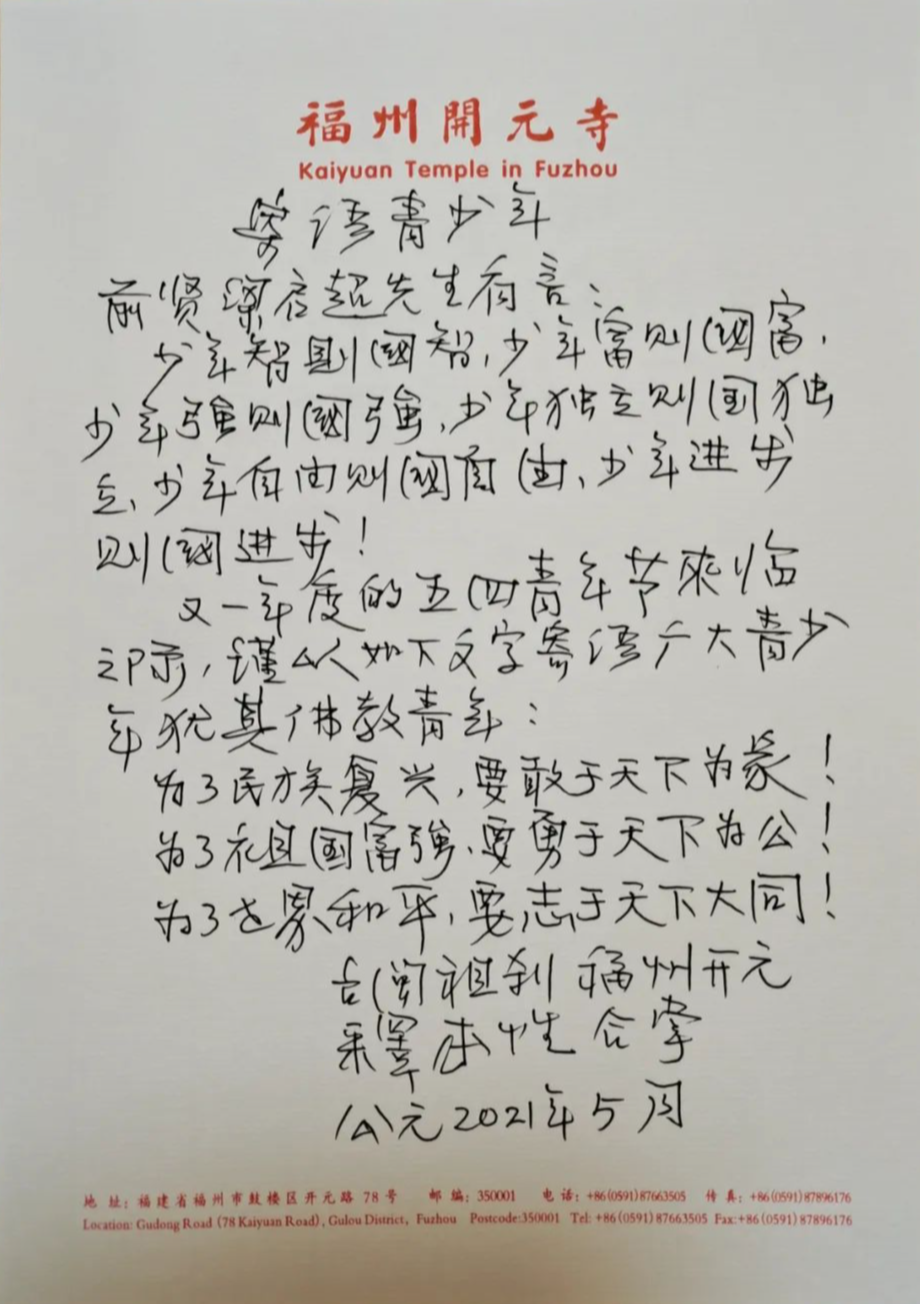 福州開元寺
Kaiyuan Temple in Fuzhou
寄语青少年
前贤梁启超先生有言：
少年智则國智，少年富则國富，
少年强则國强，少年独立则国独
立，少年自由则國自由，少年进步
则國进步！
又一年度的五四青年节來临
之际，谨以如下文字寄语广大青少
年犹其佛教青年：
为了民族复兴，要敢于天下为家！
为了祖国富强，要勇于天下为公！
为了世界和平，要志于天下大同！
台闽祖刹 福州开元
釋本性 合掌
公元2021年5月
地 址：福建省福州市鼓楼区开元路 78 号 邮 编：350001 电 话：+86(0591)87663505 传 真：+86(0591)87896176
Location: Gudong Road (78 Kaiyuan Road), Gulou District, Fuzhou Postcode:350001 Tel: +86(0591)87663505 Fax:+86(0591)87896176